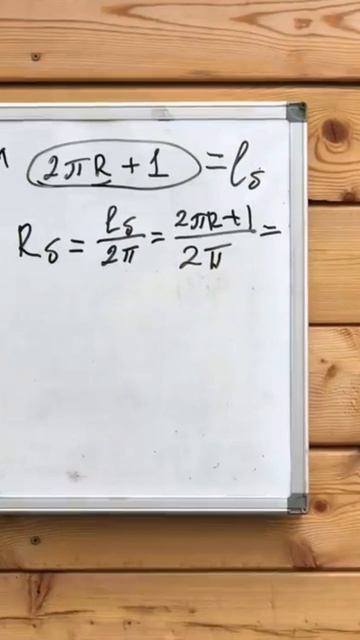 2πR + 1 = lδ
Rδ = lδ/2π = 2πR+1/2π =